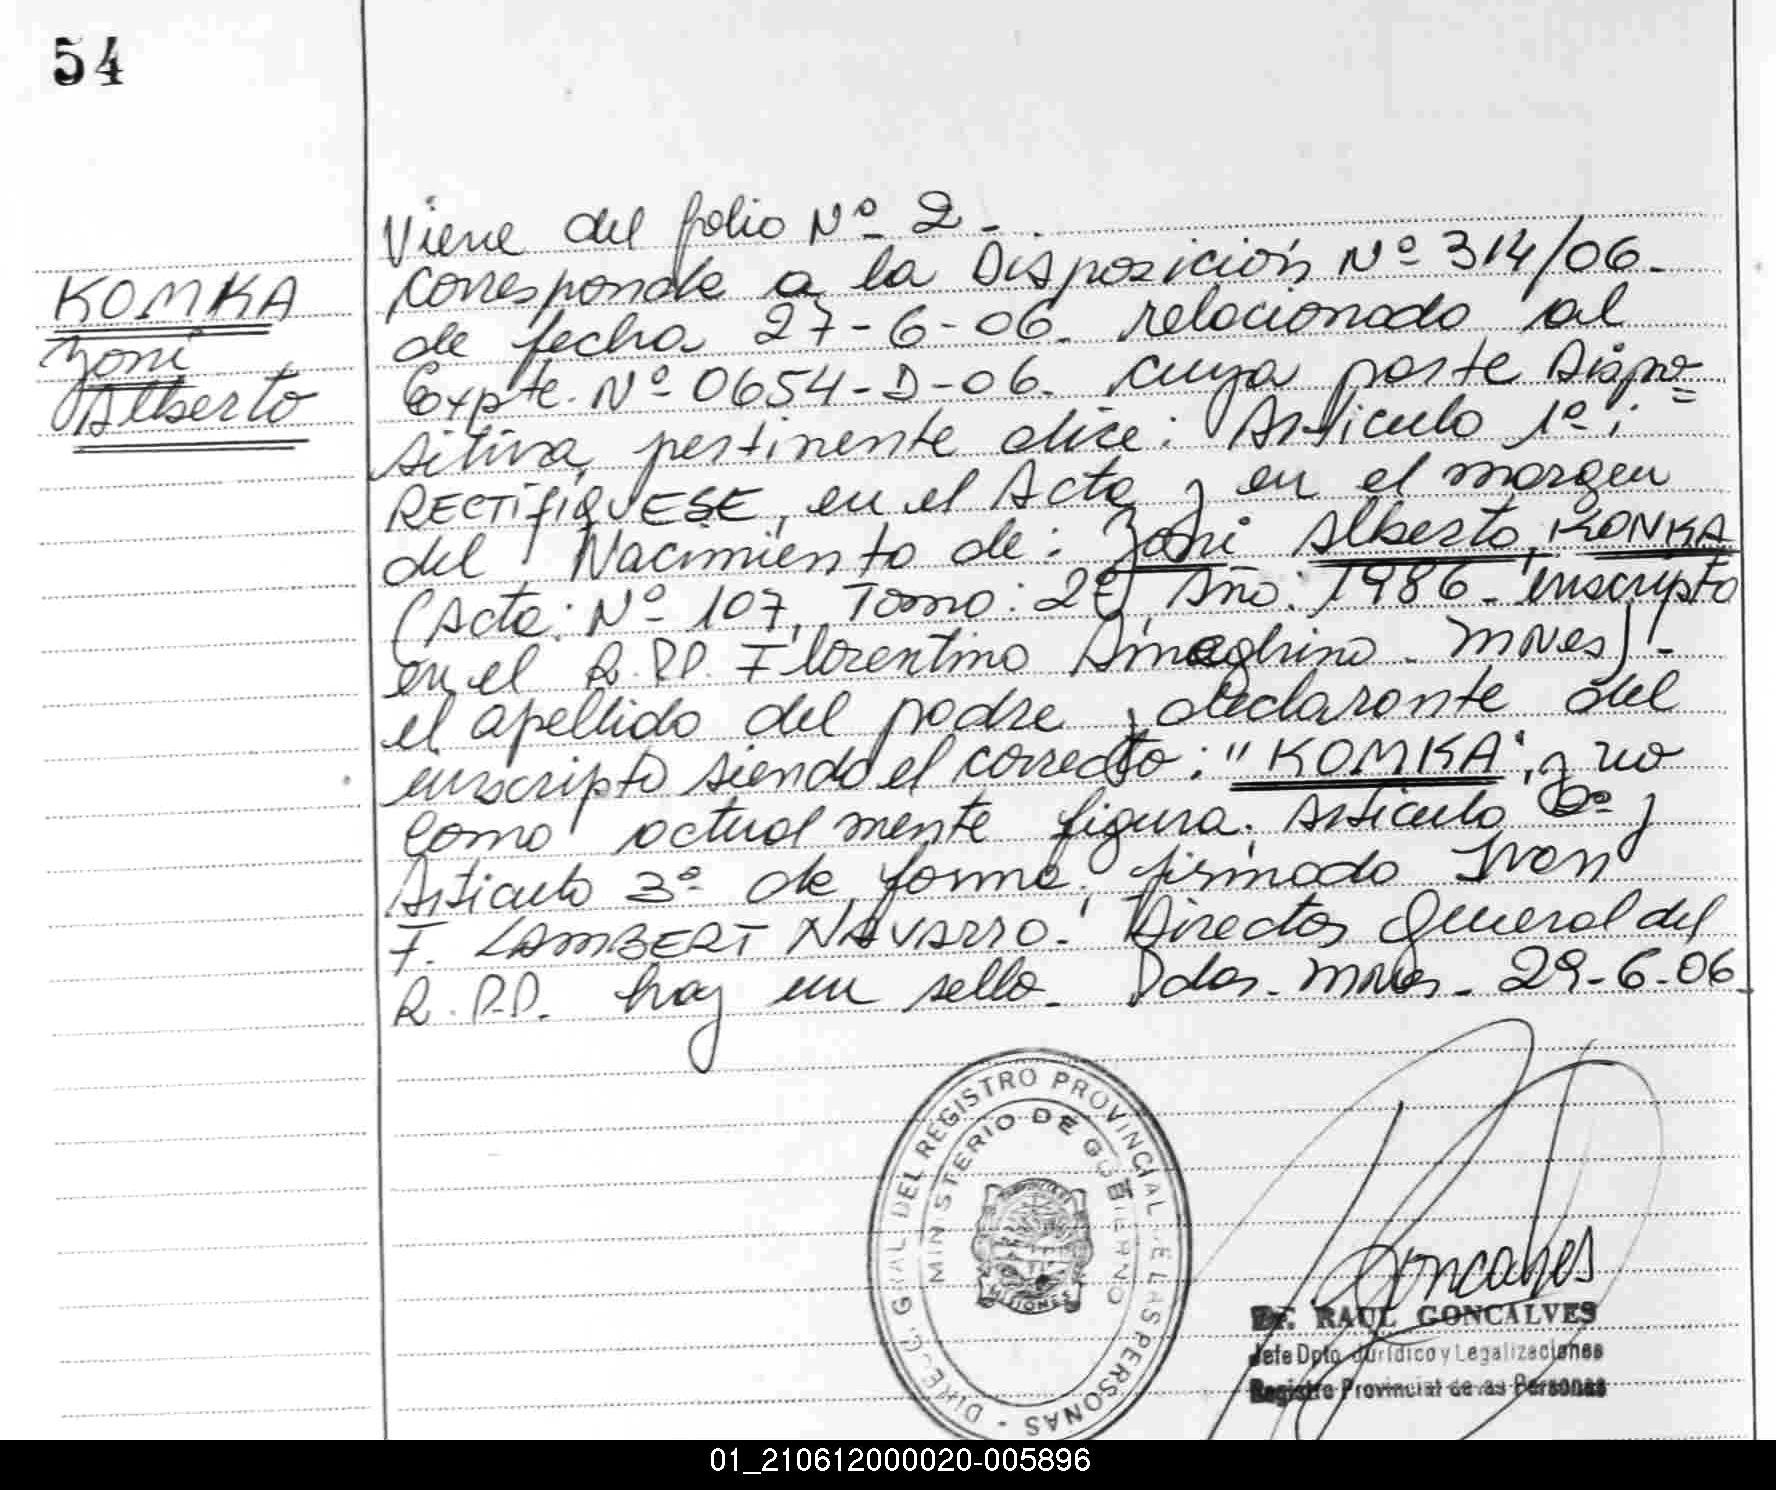 54
KOMKA
Zoni
Alberto
Viene del folio Nº 2 -.
Corresponde a la Disposición Nº 314/06.-
de fecha 27-6-06. relacionado al
Expte. Nº 0654-D-06. cuya parte Dispo=
sitiva, pertinente dice: Artículo 1º:
RECTIFIQUESE, en el Acta y en el margen
del Nacimiento de: Zoni Alberto KONKA
(Acta: Nº 107, Tomo: 2º, Año: 1986 - inscripto
en el R.P.P. Florentino Ameghino - Mnes) -
el apellido del padre y declarante del
inscripto siendo el correcto: "KOMKA", y no
como actualmente figura. Articulo 2º y
Articulo 3º de forma. firmado Ivan
F. LAMBERT NAVARRO. Director General del
R.P.P. hay un sello - Pdas. Mnes - 29-6-06-
DIREC. GRAL DEL REGISTRO PROVINCIAL DE LAS PERSONAS -
MINISTERIO DE GOBIERNO
MISIONES
Goncalves
Dr. RAUL GONCALVES
Jefe Dpto. Jurídico y Legalizaciones
Registro Provincial de las Personas
01_210612000020-005896